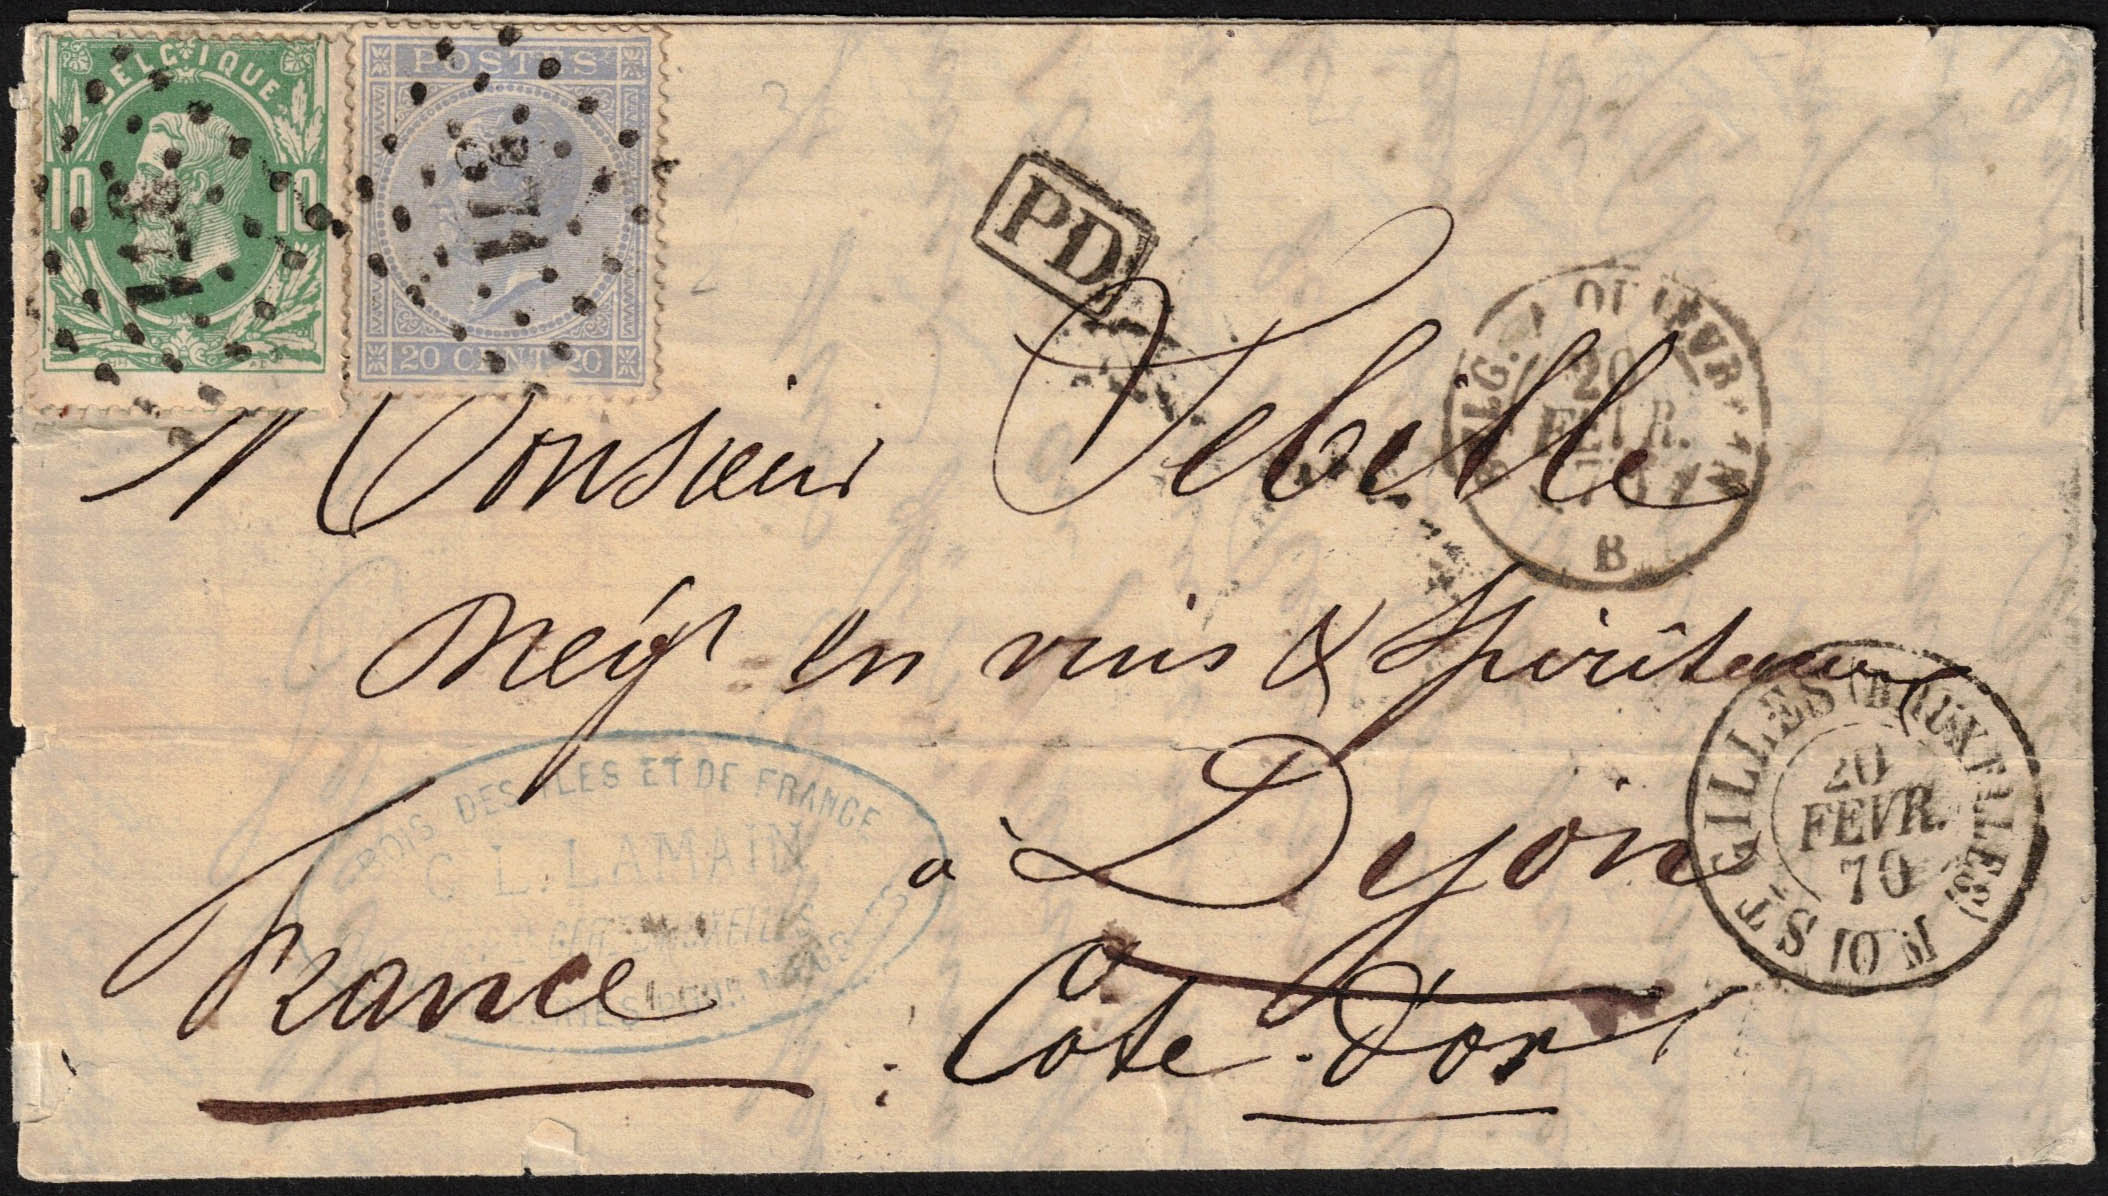 BELGIQUE
10 10
POSTES
20 CENT. 20
PD
Monsieur Sebille
20
FEVR.
70
B
Négt en vins & Spiritueux
ST GILLES (BRUXELLES)
20
FEVR.
70
à Dijon
BOIS DES ILES ET DE FRANCE
C. L. LAMAIN
France
Côte-d'or